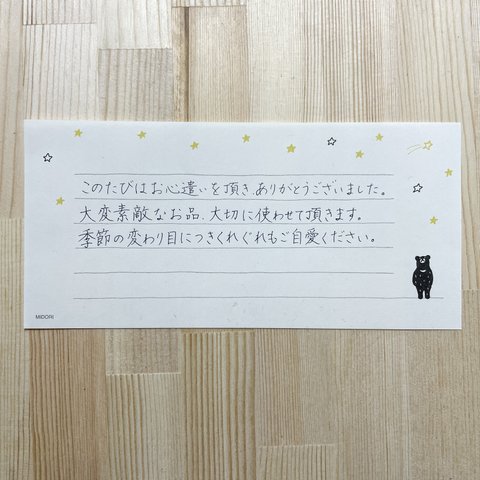 このたびはお心遣いを頂き、ありがとうございました。
大変素敵なお品、大切に使わせて頂きます。
季節の変わり目につきくれぐれもご自愛ください。
MIDORI